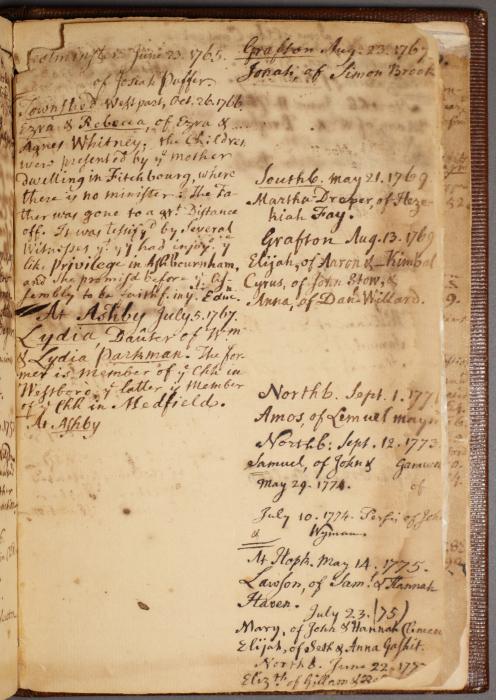 June 23. 1765.
of Josiah Puffer.
Townshend West part, Oct. 26. 1766.
Ezra & Rebecca, of Ezra &
Agnes Whitney; the Children
were presented by yͤ mother
dwelling in Fitchbourg, where
there is no minister: The Fa-
ther was gone to a grͭ Distance
off. It was testify'd by several
Witnesses yͭ yͤ had injoy'd yͤ
like Privilege in Ashbournham,
and she promis'd before yͤ As-
sembly to be faithf. in yͤ Educ.
At Ashby July 5. 1767.
Lydia, Dauter of Wm
& Lydia Parkman. The for-
mer is Member of yͤ Chh in
Westboro, yͤ latter yͤ Member
of yͤ Chh in Medfield.
At Ashby
Grafton Aug. 23. 1767
Jonah, of Simon Brook
Southb. May 21. 1769
Martha Draper, of Heze-
kiah Fay.
Grafton Aug. 13. 1769
Elijah, of Aaron & Kimbal
Cyrus, of John Stow, &
Anna, of Dan. Willard.
Northb. Sept. 1. 177
Amos, of Lemuel mayn
Northb: Sept. 12. 1773
Samuel, of John &
May 29. 1774. of
July 10. 1774. of John
& Wyman.
At Hopk. May 14. 1775.
Lawson, of Sam. & Hannah
Haven.
July 23. (75)
Mary, of John & Hannah
Elijah, of Seth & Anna
Northb. June 22. 177
Eliz.th of Gillam &